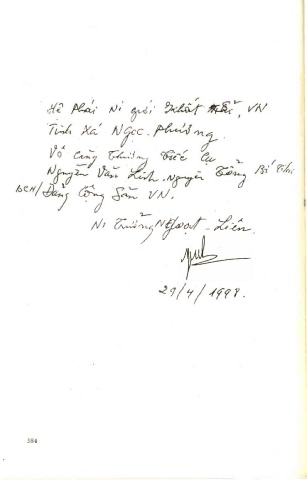 Hệ Phái Ni giới Khất Sĩ, VN
Tịnh Xá Ngọc-Phương.
Vô Cùng Thương Tiếc Cụ
Nguyễn Văn Linh. Nguyên Tổng Bí Thư
BCH/Đảng Cộng Sản VN.
Ni Trưởng Ngoạt-Liên.
29/4/1998.
384